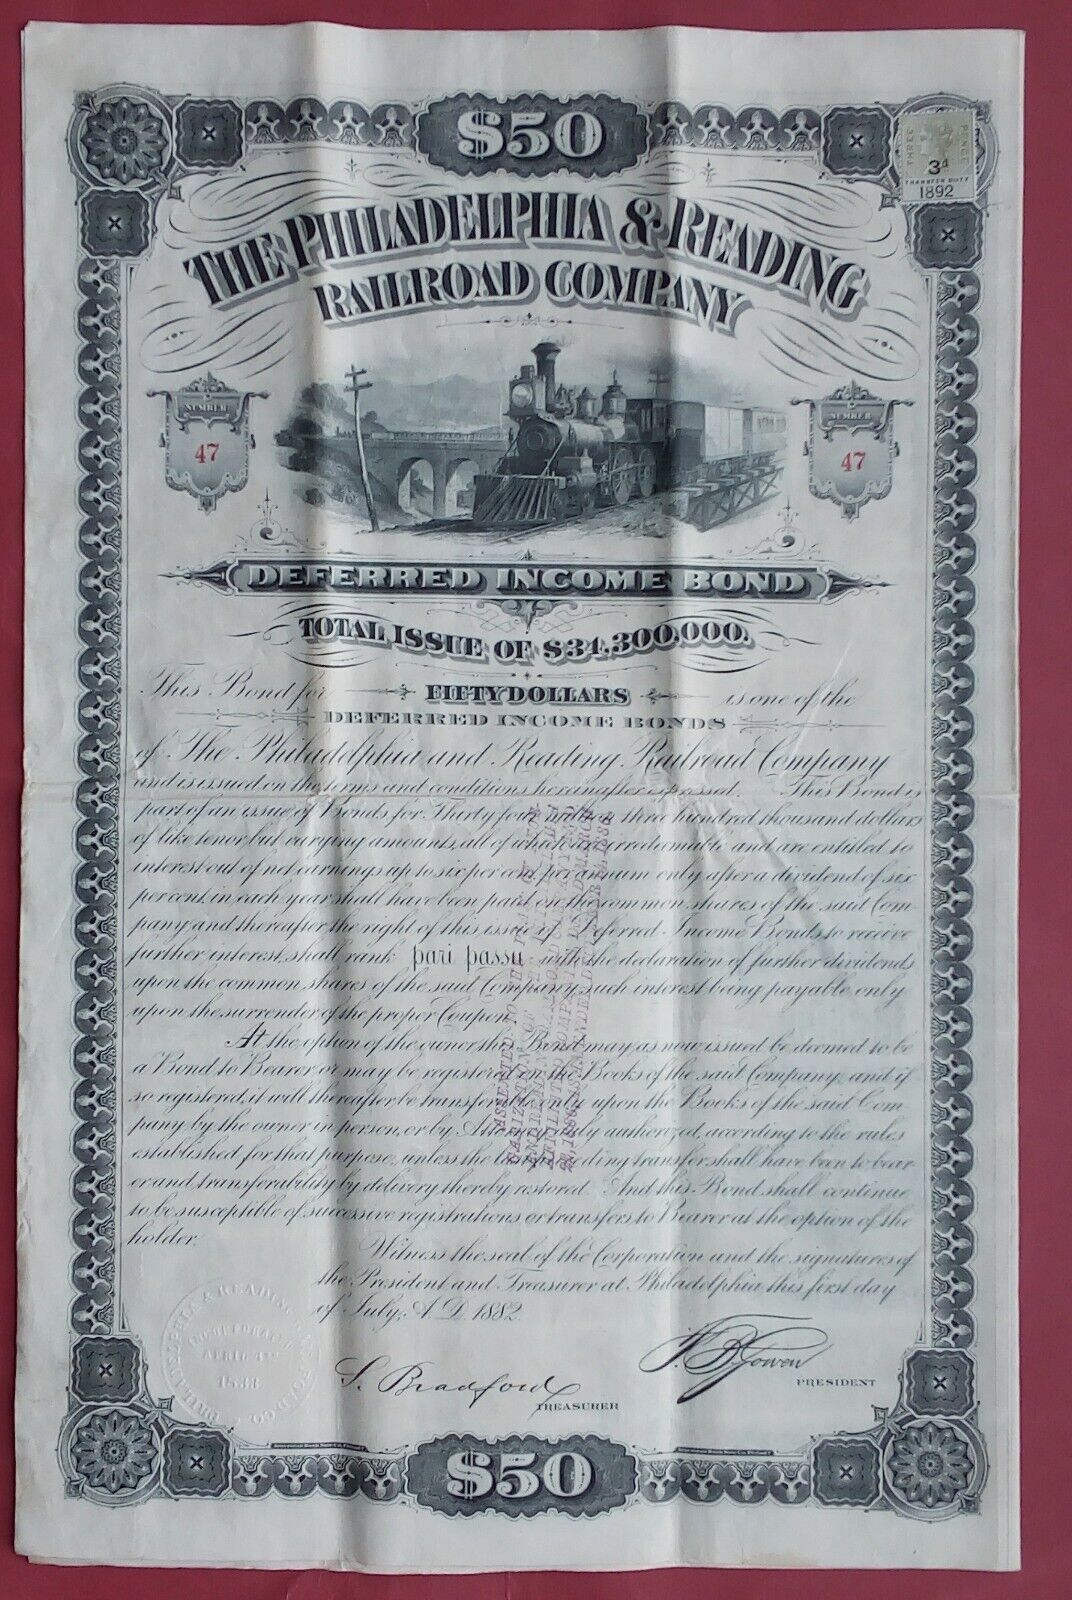 $50
THREE PENCE
3d
TRANSFER DUTY
1892
THE PHILADELPHIA & READING
RAILROAD COMPANY
NUMBER
47
NUMBER
47
DEFERRED INCOME BOND
TOTAL ISSUE OF $34,300,000.
This Bond for FIFTY DOLLARS is one of the
DEFERRED INCOME BONDS
of The Philadelphia and Reading Railroad Company
and is issued on the terms and conditions hereinafter expressed. This Bond is
part of an issue of Bonds for Thirty four million three hundred thousand dollars
of like tenor but varying amounts, all of which are irredeemable and are entitled to
interest out of net earnings up to six per cent. per annum only after a dividend of six
per cent. in each year shall have been paid on the common shares of the said Com-
pany and thereafter the right of this issue of Deferred Income Bonds to receive
further interest, shall rank pari passu with the declaration of further dividends
upon the common shares of the said Company, such interest being payable only
upon the surrender of the proper Coupon.
At the option of the owner this Bond may as now issued be deemed to be
a Bond to Bearer or may be registered on the Books of the said Company, and if
so registered, it will thereafter be transferable only upon the Books of the said Com-
pany by the owner in person, or by Attorney duly authorized, according to the rules
established for that purpose, unless the last preceding transfer shall have been to bear-
er and transferability by delivery thereby restored. And this Bond shall continue
to be susceptible of successive registrations or transfers to Bearer at the option of the
holder.
Witness the seal of the Corporation and the signatures of
the President and Treasurer at Philadelphia this first day
of July, A.D. 1882.
PHILADELPHIA & READING RAILROAD CO.
INCORPORATED
APRIL 4TH
1833
S. Bradford
TREASURER
F. B. Gowen
PRESIDENT
$50
ASSENTED TO THE